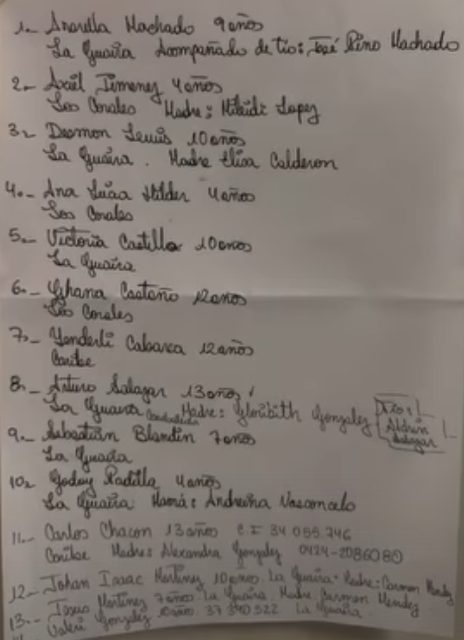 1.- Anarella Machado 9 años
La Guaira Acompañado de tio: José Pino Machado
2.- Axél Jimenez 4 años
Los Corales Madre: Lopez
3.- Desmon Lewis 10 años
La Guaira. Madre Elisa Calderon
4.- Ana Hilder 4 años
Los Corales
5.- Victoria Castillo 10 años
La Guaira
6.- Ghana Castaño 12 años
Los Corales
7.- Yenderli Cabarca 12 años
Caribe
8.- Arturo Salazar 13 años
La Guaira Madre: Gonzalez Tio: Aldrin Salazar
9.- Sebastián Blandin 7 años
La Guaira
10.- Padilla 4 años
La Guaira Mamá: Andreina Vasconcelo
11.- Carlos Chacon 13 años C.I 34.055.746
Caribe Madre: Alexandra Gonzalez 0424-2086080
12.- Johan Isaac Martinez 10 años. La Guaira. Madre: Carmen Mendez
13.- Martinez 7 años. La Guaira. Madre Carmen Mendez
Gonzalez 10 años 37 340 522 La Guaira.